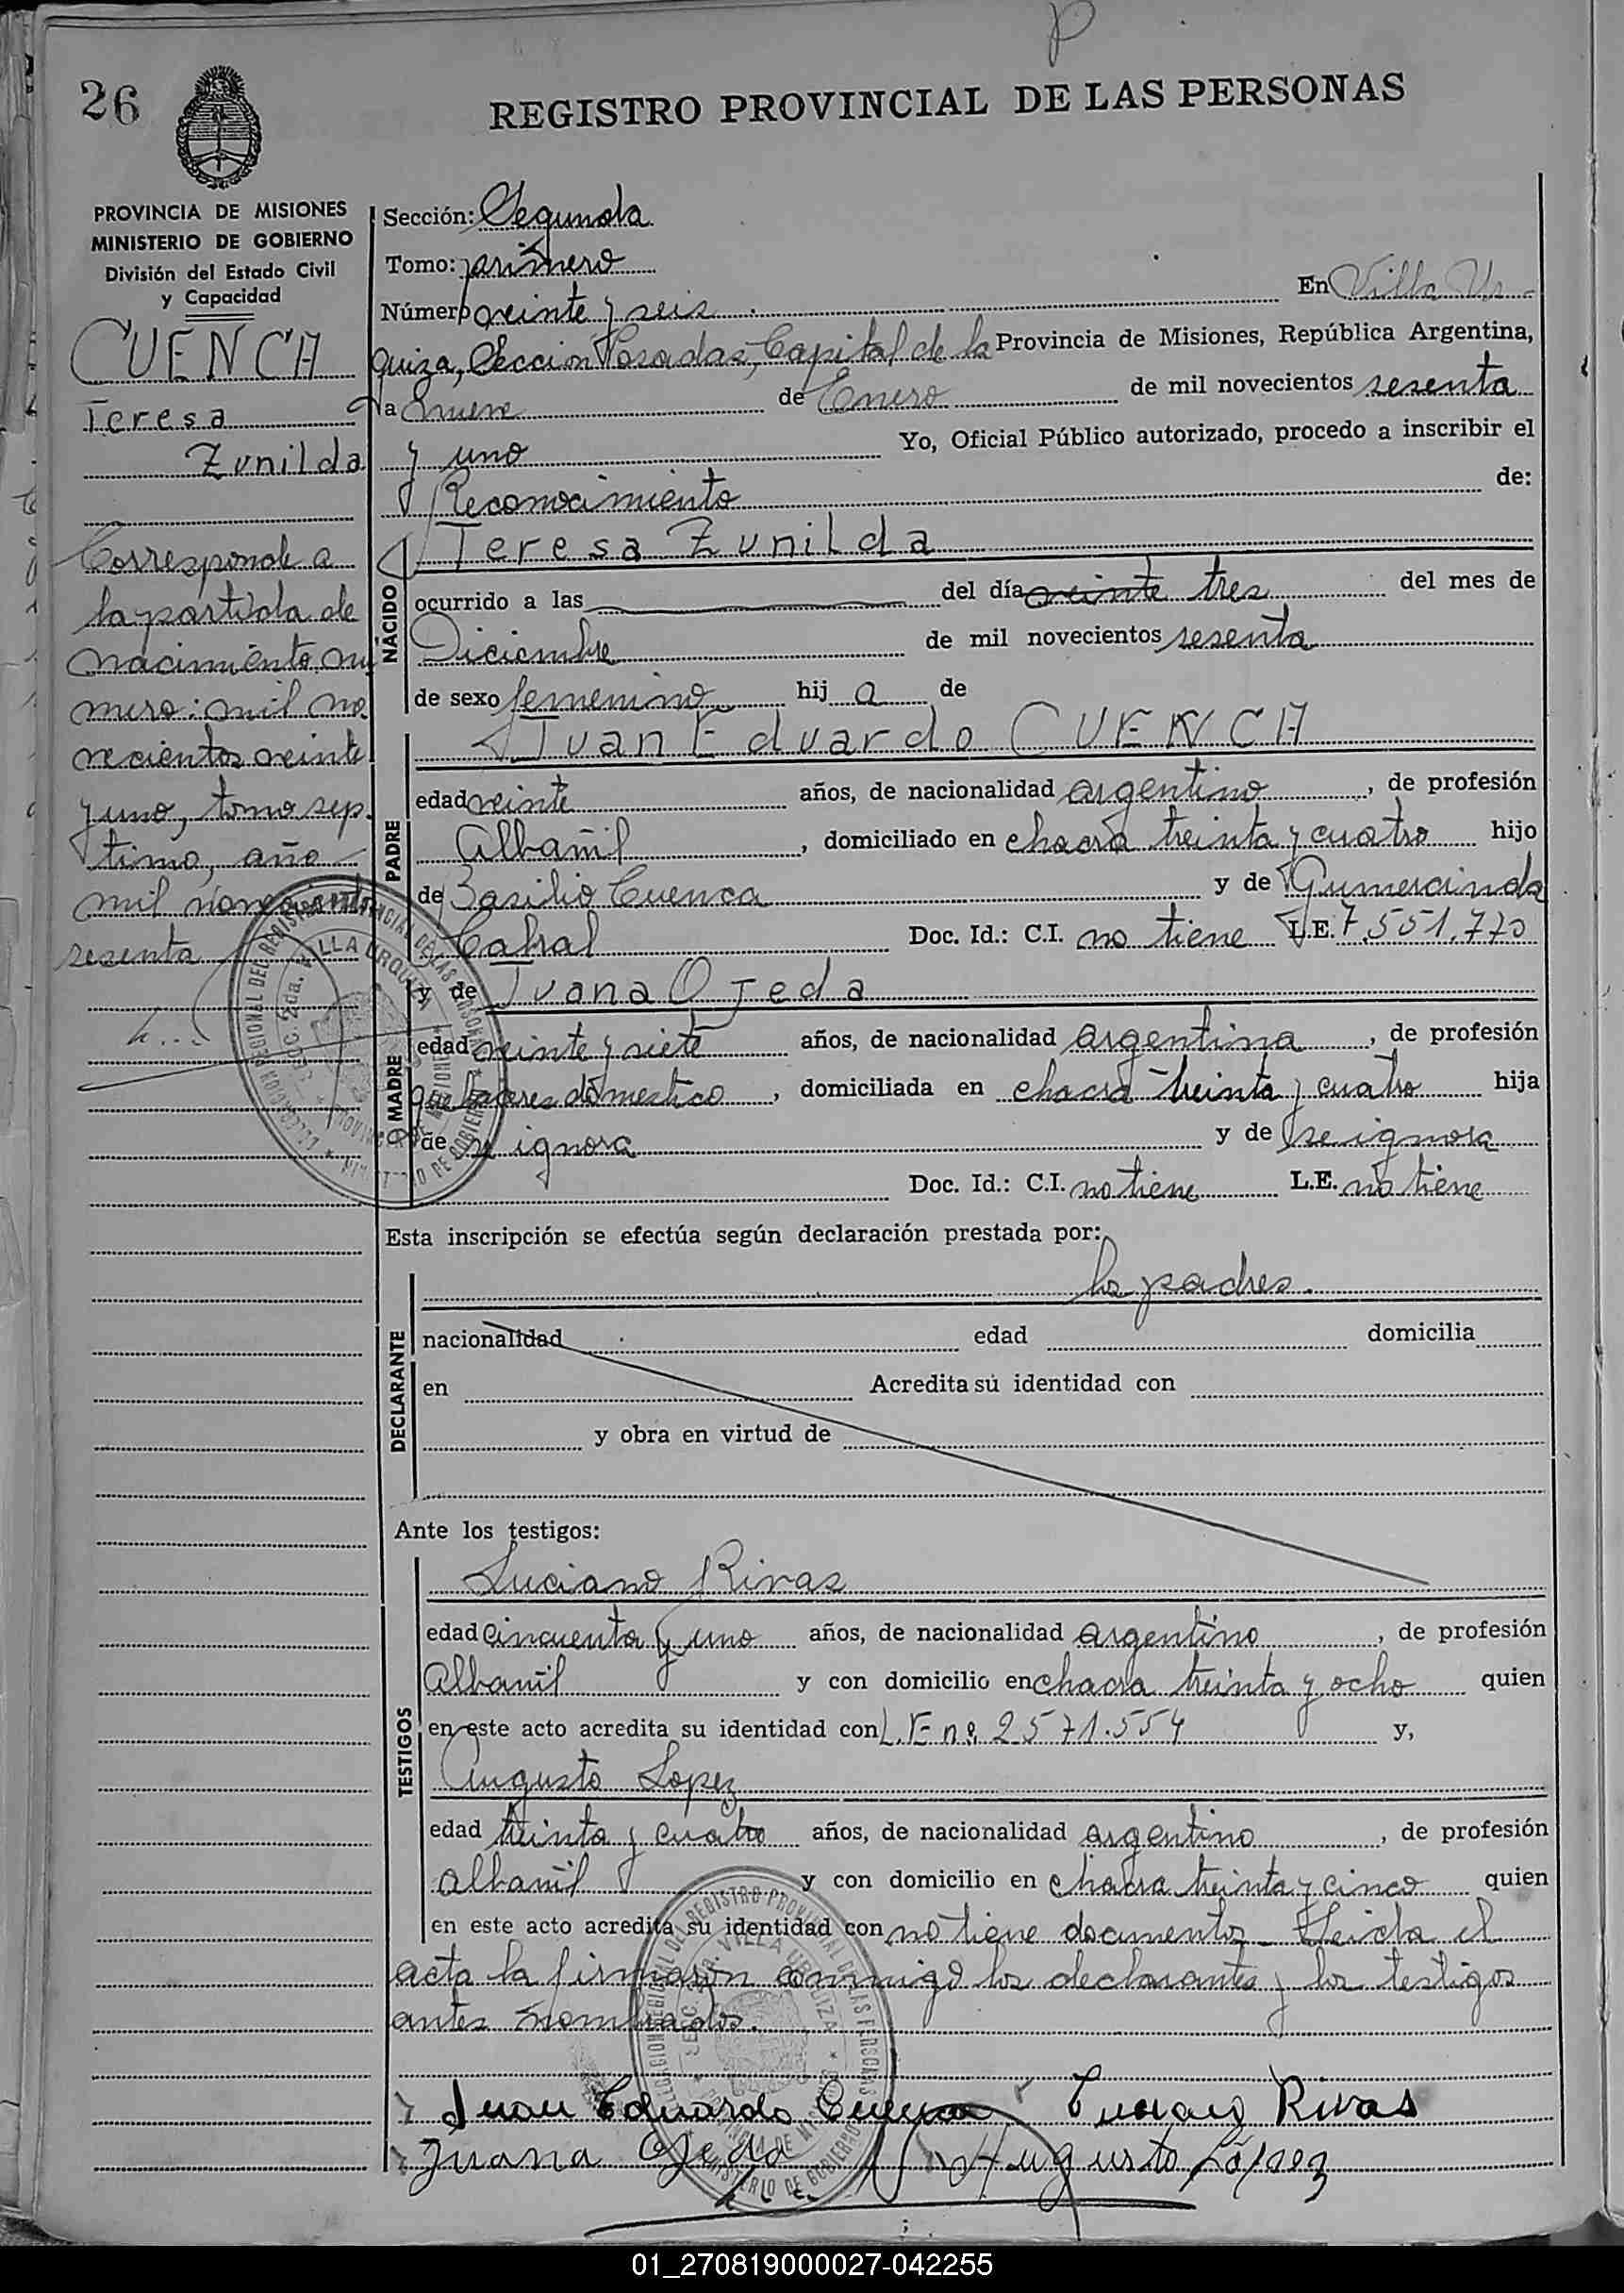 P
26
REGISTRO PROVINCIAL DE LAS PERSONAS
PROVINCIA DE MISIONES
MINISTERIO DE GOBIERNO
División del Estado Civil
y Capacidad
CUENCA
Teresa
Zunilda
Corresponde a
la partida de
nacimiento nu
mero: mil no
vecientos veinte
y uno, tomo sép
timo, año
mil novecientos
sesenta
Sección: Segunda
Tomo: primero
Número veinte y seis En Villa Ur-
quiza, Sección Posadas, Capital de la Provincia de Misiones, República Argentina,
a nueve de Enero de mil novecientos sesenta
y uno Yo, Oficial Público autorizado, procedo a inscribir el
Reconocimiento de:
Teresa Zunilda
NACIDO
ocurrido a las del día veinte tres del mes de
Diciembre de mil novecientos sesenta
de sexo femenino hija de
PADRE
Juan Eduardo CUENCA
edad veinte años, de nacionalidad argentino, de profesión
Albañil, domiciliado en chacra treinta y cuatro hijo
de Basilio Cuenca y de Gumercinda
Cabral Doc. Id.: C.I. no tiene L.E. 7.551.770
MADRE
y de Juana Ojeda
edad veinte y siete años, de nacionalidad argentina, de profesión
quehaceres domestico, domiciliada en chacra treinta y cuatro hija
de se ignora y de se ignora
Doc. Id.: C.I. no tiene L.E. no tiene
Esta inscripción se efectúa según declaración prestada por:
DECLARANTE
los padres.
nacionalidad edad domicilia
en Acredita su identidad con
y obra en virtud de
Ante los testigos:
TESTIGOS
Luciano Rivas
edad cincuenta y uno años, de nacionalidad argentino, de profesión
Albañil y con domicilio en chacra treinta y ocho quien
en este acto acredita su identidad con L.E. nº 2571.554 y,
Augusto Lopez
edad treinta y cuatro años, de nacionalidad argentino, de profesión
albañil y con domicilio en chacra treinta y cinco quien
en este acto acredita su identidad con no tiene documentos - Leida el
acta la firmaron conmigo los declarantes y los testigos
antes nombrados.
Juan Eduardo Cuenca Luciano Rivas
Juana Ojeda Augusto López
01_270819000027-042255